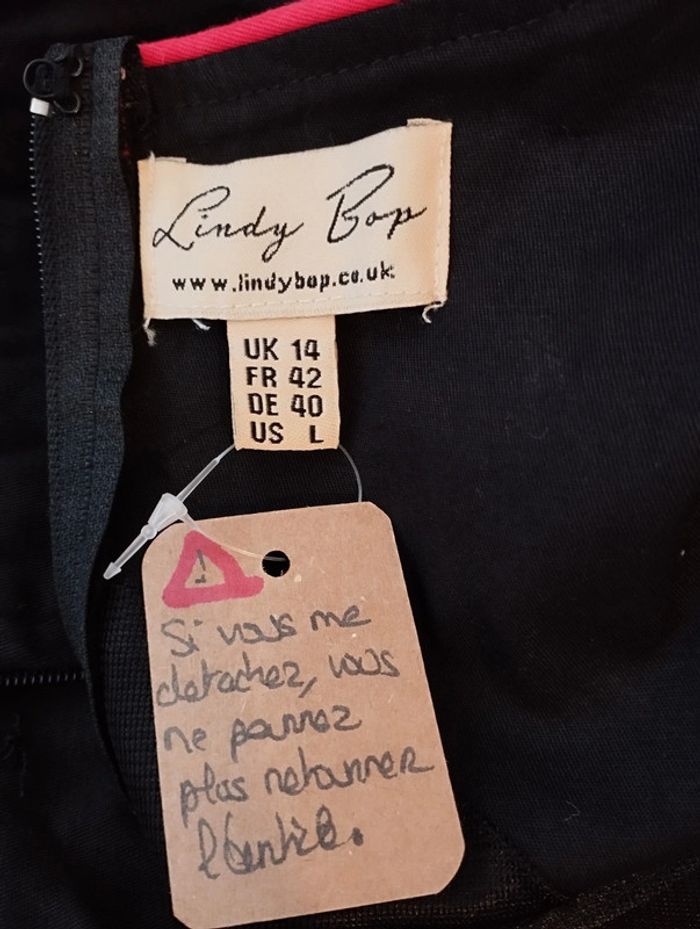 Lindy Bop
www.lindybop.co.uk
UK 14
FR 42
DE 40
US L
!
Si vous me
detachez, vous
ne pourrez
plus retourner
l'article.